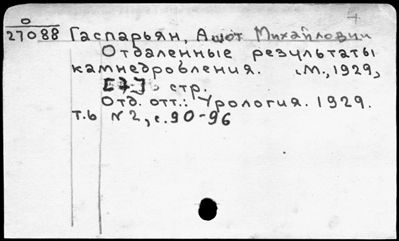 О
27088 Гаспарьян, Ашот Михайлович
Отдаленные результаты
камнедробления. М., 1929,
[7] стр.
Отд. отт.: Урология. 1929.
т.6 №2, с.90-96